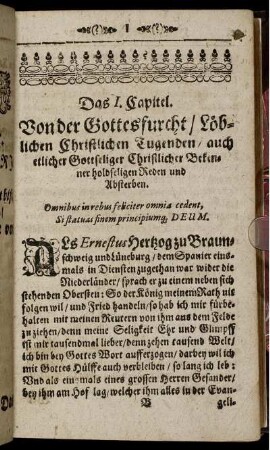 I
Das I. Capitel.
Von der Gottesfurcht / Löb-
lichen Christlichen Tugenden / auch
etlicher Gottseliger Christlicher Beken-
ner holdseligen Reden und
Absterben.
Omnibus in rebus feliciter omnia cedent,
Si statuas finem principiumq; DEUM.
ALs Ernestus Hertzog zu Braun-
schweig und Lüneburg / dem Spanier eins-
mals in Diensten zugethan war wider die
Niederländer / sprach er zu einem neben sich
stehenden Obersten: So der König meinem Rath wil
folgen wil / und Fried handeln / so hab ich mir fürbe-
halten mit meinen Reutern von ihm aus dem Felde
zu ziehen / denn meine Seligkeit Ehr und Glimpff
ist mir tausendmal lieber / denn zehen tausend Welt /
ich bin bey Gottes Wort aufferzogen / darbey wil ich
mit Gottes Hülffe auch verbleiben / so lang ich leb:
Und als einsmals eines grossen Herren Gesandter /
bey ihm am Hof lag / welcher ihm alles in der Evan-
B geli-